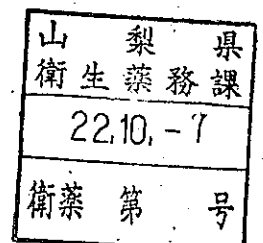 山梨県
衛生薬務課
22.10.-7
衛薬第 号